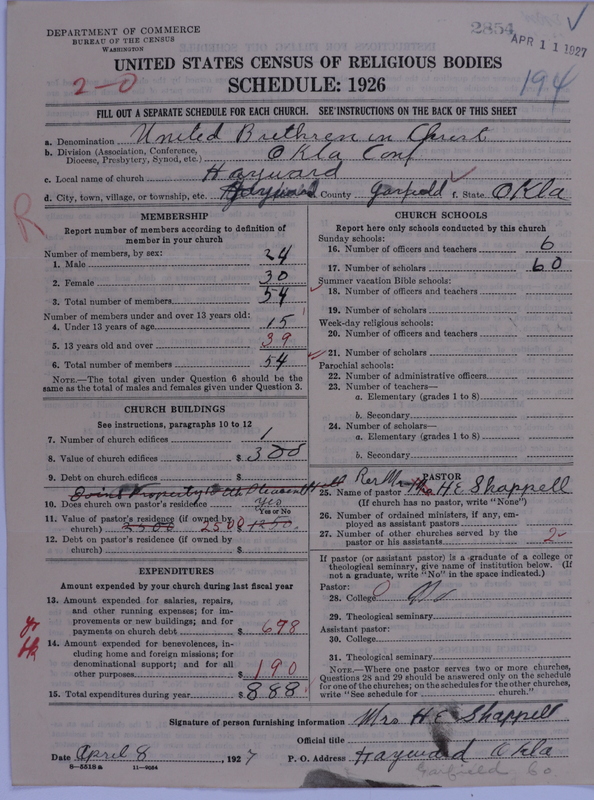 DEPARTMENT OF COMMERCE
BUREAU OF THE CENSUS
WASHINGTON
2854
APR 11 1927
UNITED STATES CENSUS OF RELIGIOUS BODIES
2-0
SCHEDULE: 1926
194
FILL OUT A SEPARATE SCHEDULE FOR EACH CHURCH. SEE INSTRUCTIONS ON THE BACK OF THIS SHEET
a. Denomination United Brethren in Christ
b. Division (Association, Conference, Diocese, Presbytery, Synod, etc.) Okla Conf
c. Local name of church Hayward
d. City, town, village, or township, etc. Hayward County Garfield f. State Okla
R
MEMBERSHIP
Report number of members according to definition of
member in your church
Number of members, by sex:
1. Male 24
2. Female 30
3. Total number of members 54
Number of members under and over 13 years old:
4. Under 13 years of age 15
5. 13 years old and over 39
6. Total number of members 54
NOTE.—The total given under Question 6 should be
same as the total of males and females given under Question 3.
CHURCH BUILDINGS
See instructions, paragraphs 10 to 12
7. Number of church edifices 1
8. Value of church edifices $ 300
9. Debt on church edifices $
10. Does church own pastor's residence yes
Yes or No
11. Value of pastor's residence (if owned by
church) 2500 1250
12. Debt on pastor's residence (if owned by
church) $
EXPENDITURES
Amount expended by your church during last fiscal year
13. Amount expended for salaries, repairs,
and other running expenses; for im-
provements or new buildings; and for
payments on church debt $ 698
14. Amount expended for benevolences, in-
cluding home and foreign missions; for
denominational support; and for all
other purposes $ 190
15. Total expenditures during year $ 888
CHURCH SCHOOLS
Report here only schools conducted by this church
Sunday schools:
16. Number of officers and teachers 6
17. Number of scholars 60
Summer vacation Bible schools:
18. Number of officers and teachers
19. Number of scholars
Week-day religious schools:
20. Number of officers and teachers
21. Number of scholars
Parochial schools:
22. Number of administrative officers
23. Number of teachers—
a. Elementary (grades 1 to 8)
b. Secondary
24. Number of scholars—
a. Elementary (grades 1 to 8)
b. Secondary
PASTOR
25. Name of pastor Mrs H E Shappell
(If church has no pastor, write "None")
26. Number of ordained ministers, if any, em-
ployed as assistant pastors
27. Number of other churches served by the
pastor or his assistants 2
If pastor (or assistant pastor) is a graduate of a college or
theological seminary, give name of institution below. (If
not a graduate, write "No" in the space indicated.)
Pastor:
28. College No
29. Theological seminary
Assistant pastor:
30. College
31. Theological seminary
NOTE.—Where one pastor serves two or more churches,
Questions 28 and 29 should be answered only on the schedule
for one of the churches; on the schedules for the other churches,
write "See schedule for church."
Signature of person furnishing information Mrs H E Shappell
Official title
Date April 8, 1927 P. O. Address Hayward Okla
8—5519 a 11—9054
Garfield Co